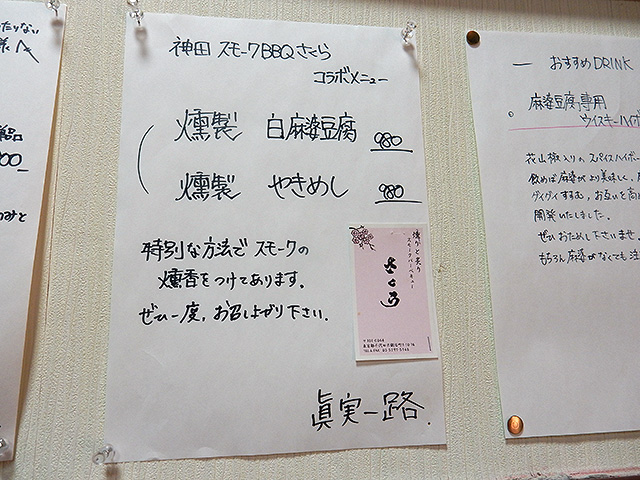 神田 スモークBBQさくら
コラボメニュー
燻製 白麻婆豆腐 980
燻製 やきめし 980
特別な方法でスモークの
燻香をつけてあります。
ぜひ一度、お召し上がり下さい。
眞実一路.
燻りと炙り
スモークバーベキュー
さくら
一 おすすめDRINK
麻婆豆腐専用
ウイスキーハイボ
花山椒入りのスパイスハイボー
飲めば麻婆がより美味しく、
グイグイすすむ、お互いを高
開発いたしました。
ぜひおためし下さいませ。
もちろん麻婆がなくても注